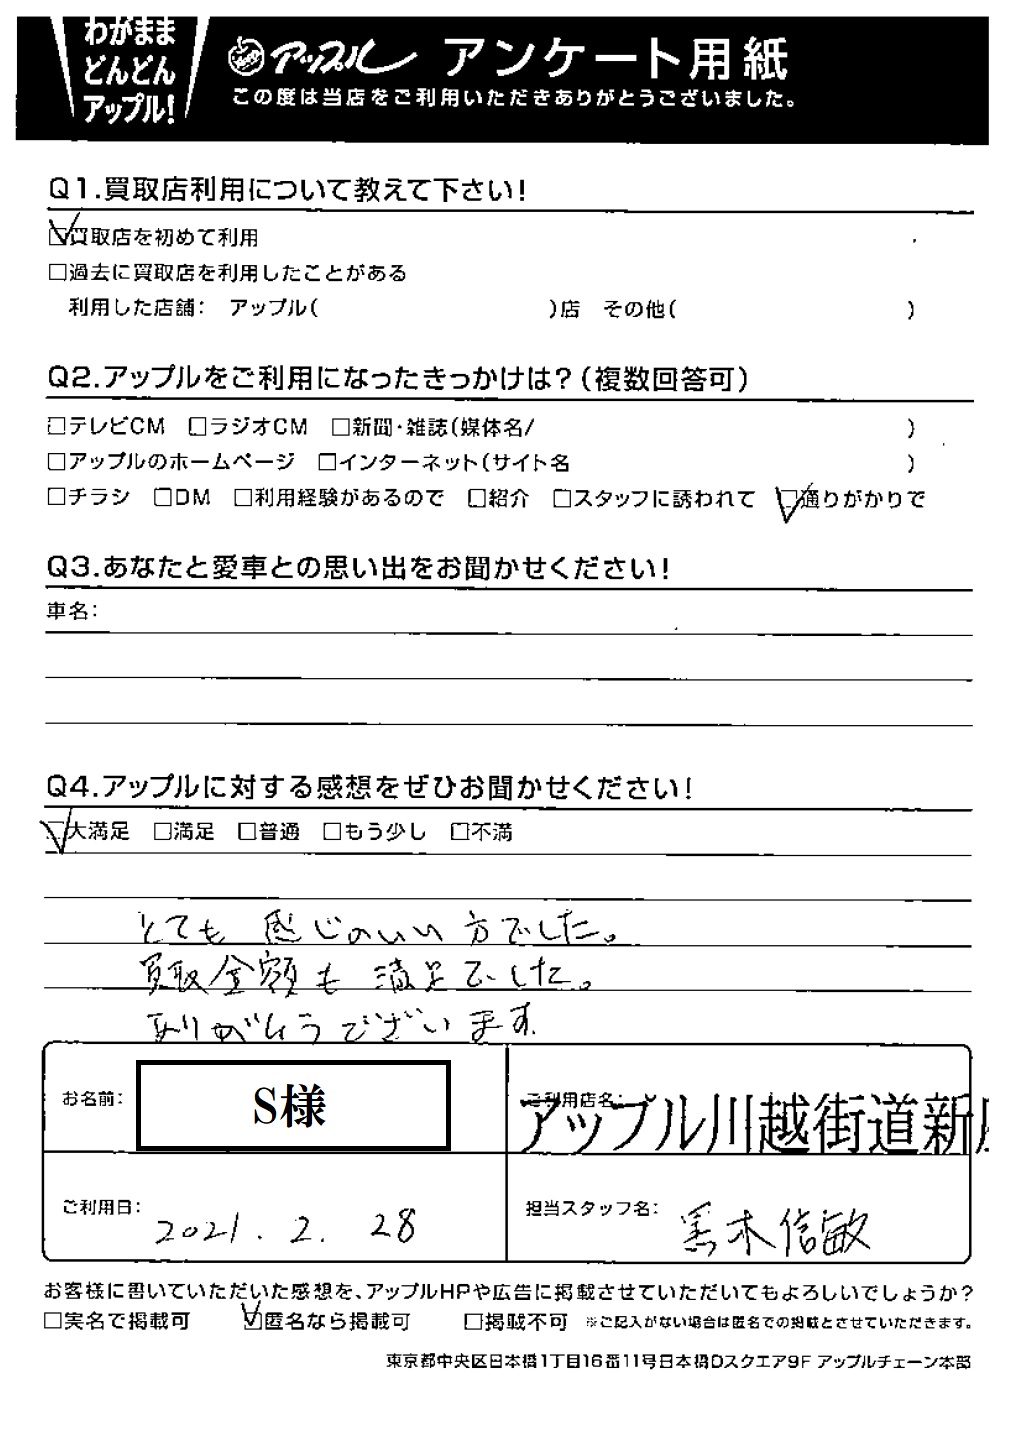 わがまま
どんどん
アップル!
アップル アンケート用紙
この度は当店をご利用いただきありがとうございました。
Q1.買取店利用について教えて下さい!
☑買取店を初めて利用
□過去に買取店を利用したことがある
利用した店舗: アップル( )店 その他( )
Q2.アップルをご利用になったきっかけは?(複数回答可)
□テレビCM □ラジオCM □新聞・雑誌(媒体名/ )
□アップルのホームページ □インターネット(サイト名 )
□チラシ □DM □利用経験があるので □紹介 □スタッフに誘われて ☑通りがかりで
Q3.あなたと愛車との思い出をお聞かせください!
車名:
Q4.アップルに対する感想をぜひお聞かせください!
☑大満足 □満足 □普通 □もう少し □不満
とても 感じのいい 方でした。
買取金額も 満足でした。
ありがとうございます
お名前: S様
ご利用店名:
アップル川越街道新
ご利用日: 2021. 2. 28
担当スタッフ名: 黒木信敏
お客様に書いていただいた感想を、アップルHPや広告に掲載させていただいてもよろしいでしょうか?
□実名で掲載可 ☑匿名なら掲載可 □掲載不可 ※ご記入がない場合は匿名での掲載とさせていただきます。
東京都中央区日本橋1丁目16番11号日本橋Dスクエア9F アップルチェーン本部